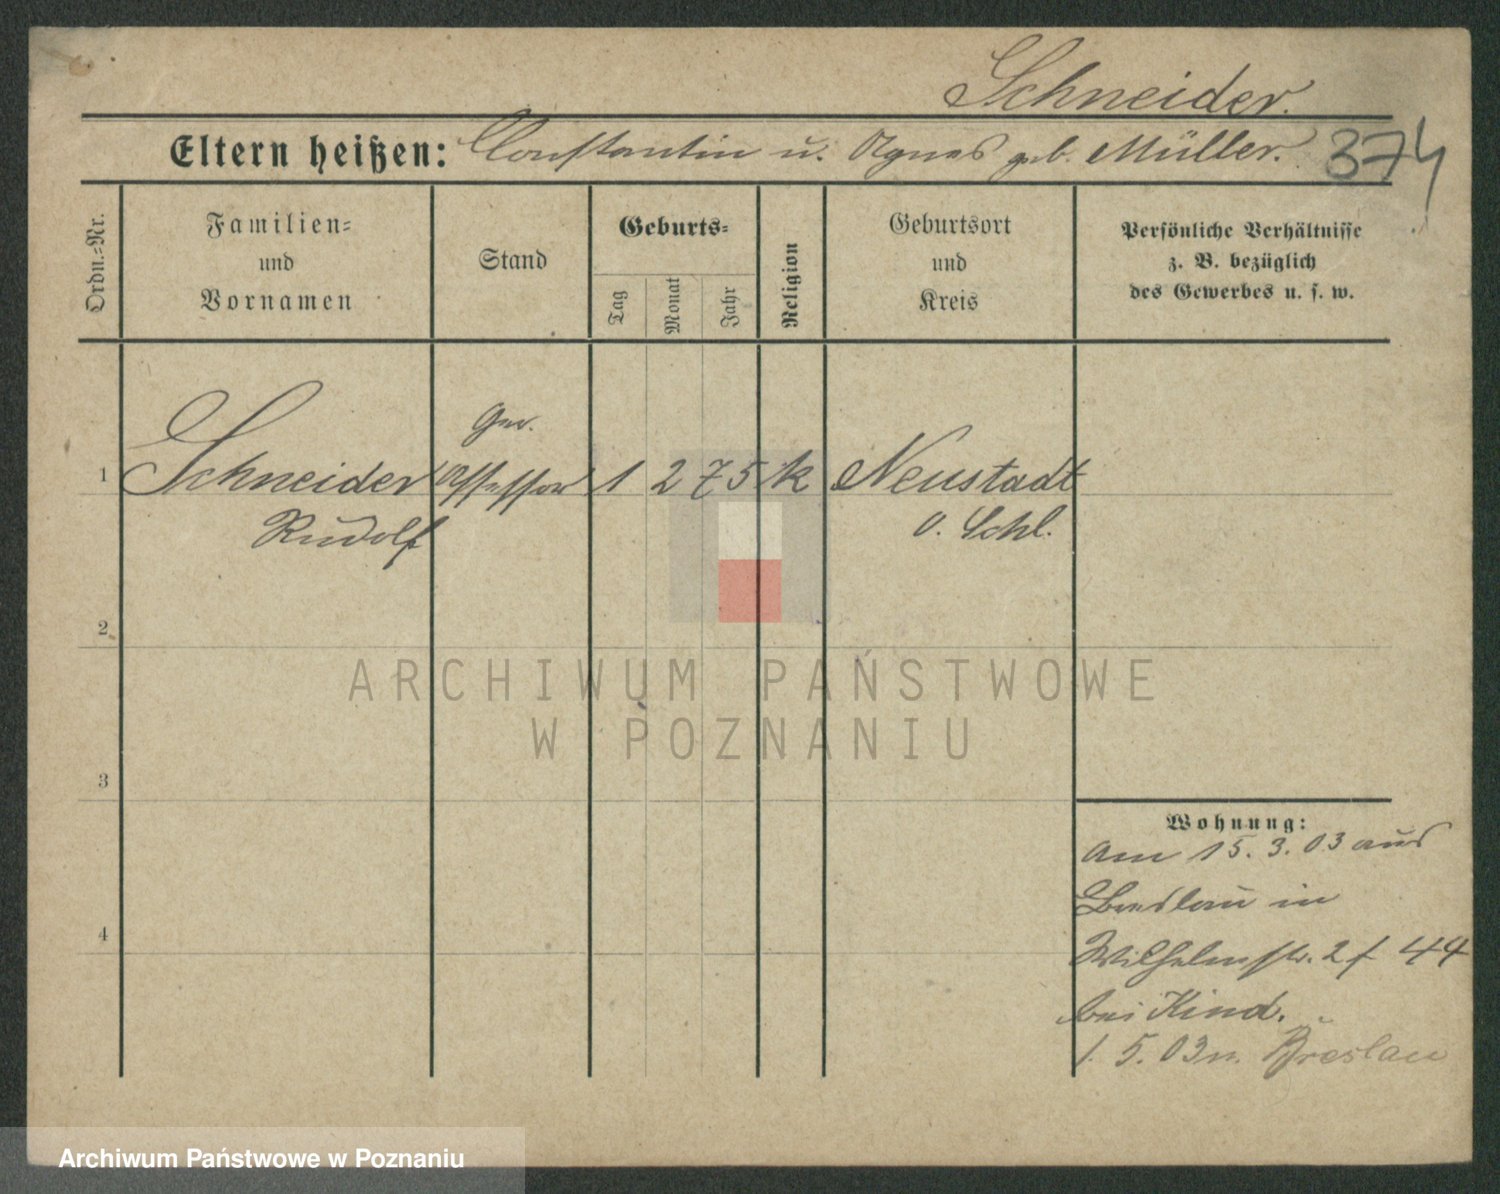 Schneider.
Eltern heißen: Constantin u. Agnes geb. Müller.
374
Ordn.-Nr.
Familien-
und
Vornamen
Stand
Geburts-
Tag
Monat
Jahr
Religion
Geburtsort
und
Kreis
Persönliche Verhältnisse
z. B. bezüglich
des Gewerbes u. s. w.
Ger.
1 Schneider Assessor 1 2 75 k Neustadt
Rudolf O. Schl.
2
ARCHIWUM PAŃSTWOWE
W POZNANIU
3
Wohnung:
Am 15.3.03 aus
Breslau in
4
Wilhelmstr. 2 f 44
bei Kind.
1.5.03 n. Breslau
Archiwum Państwowe w Poznaniu